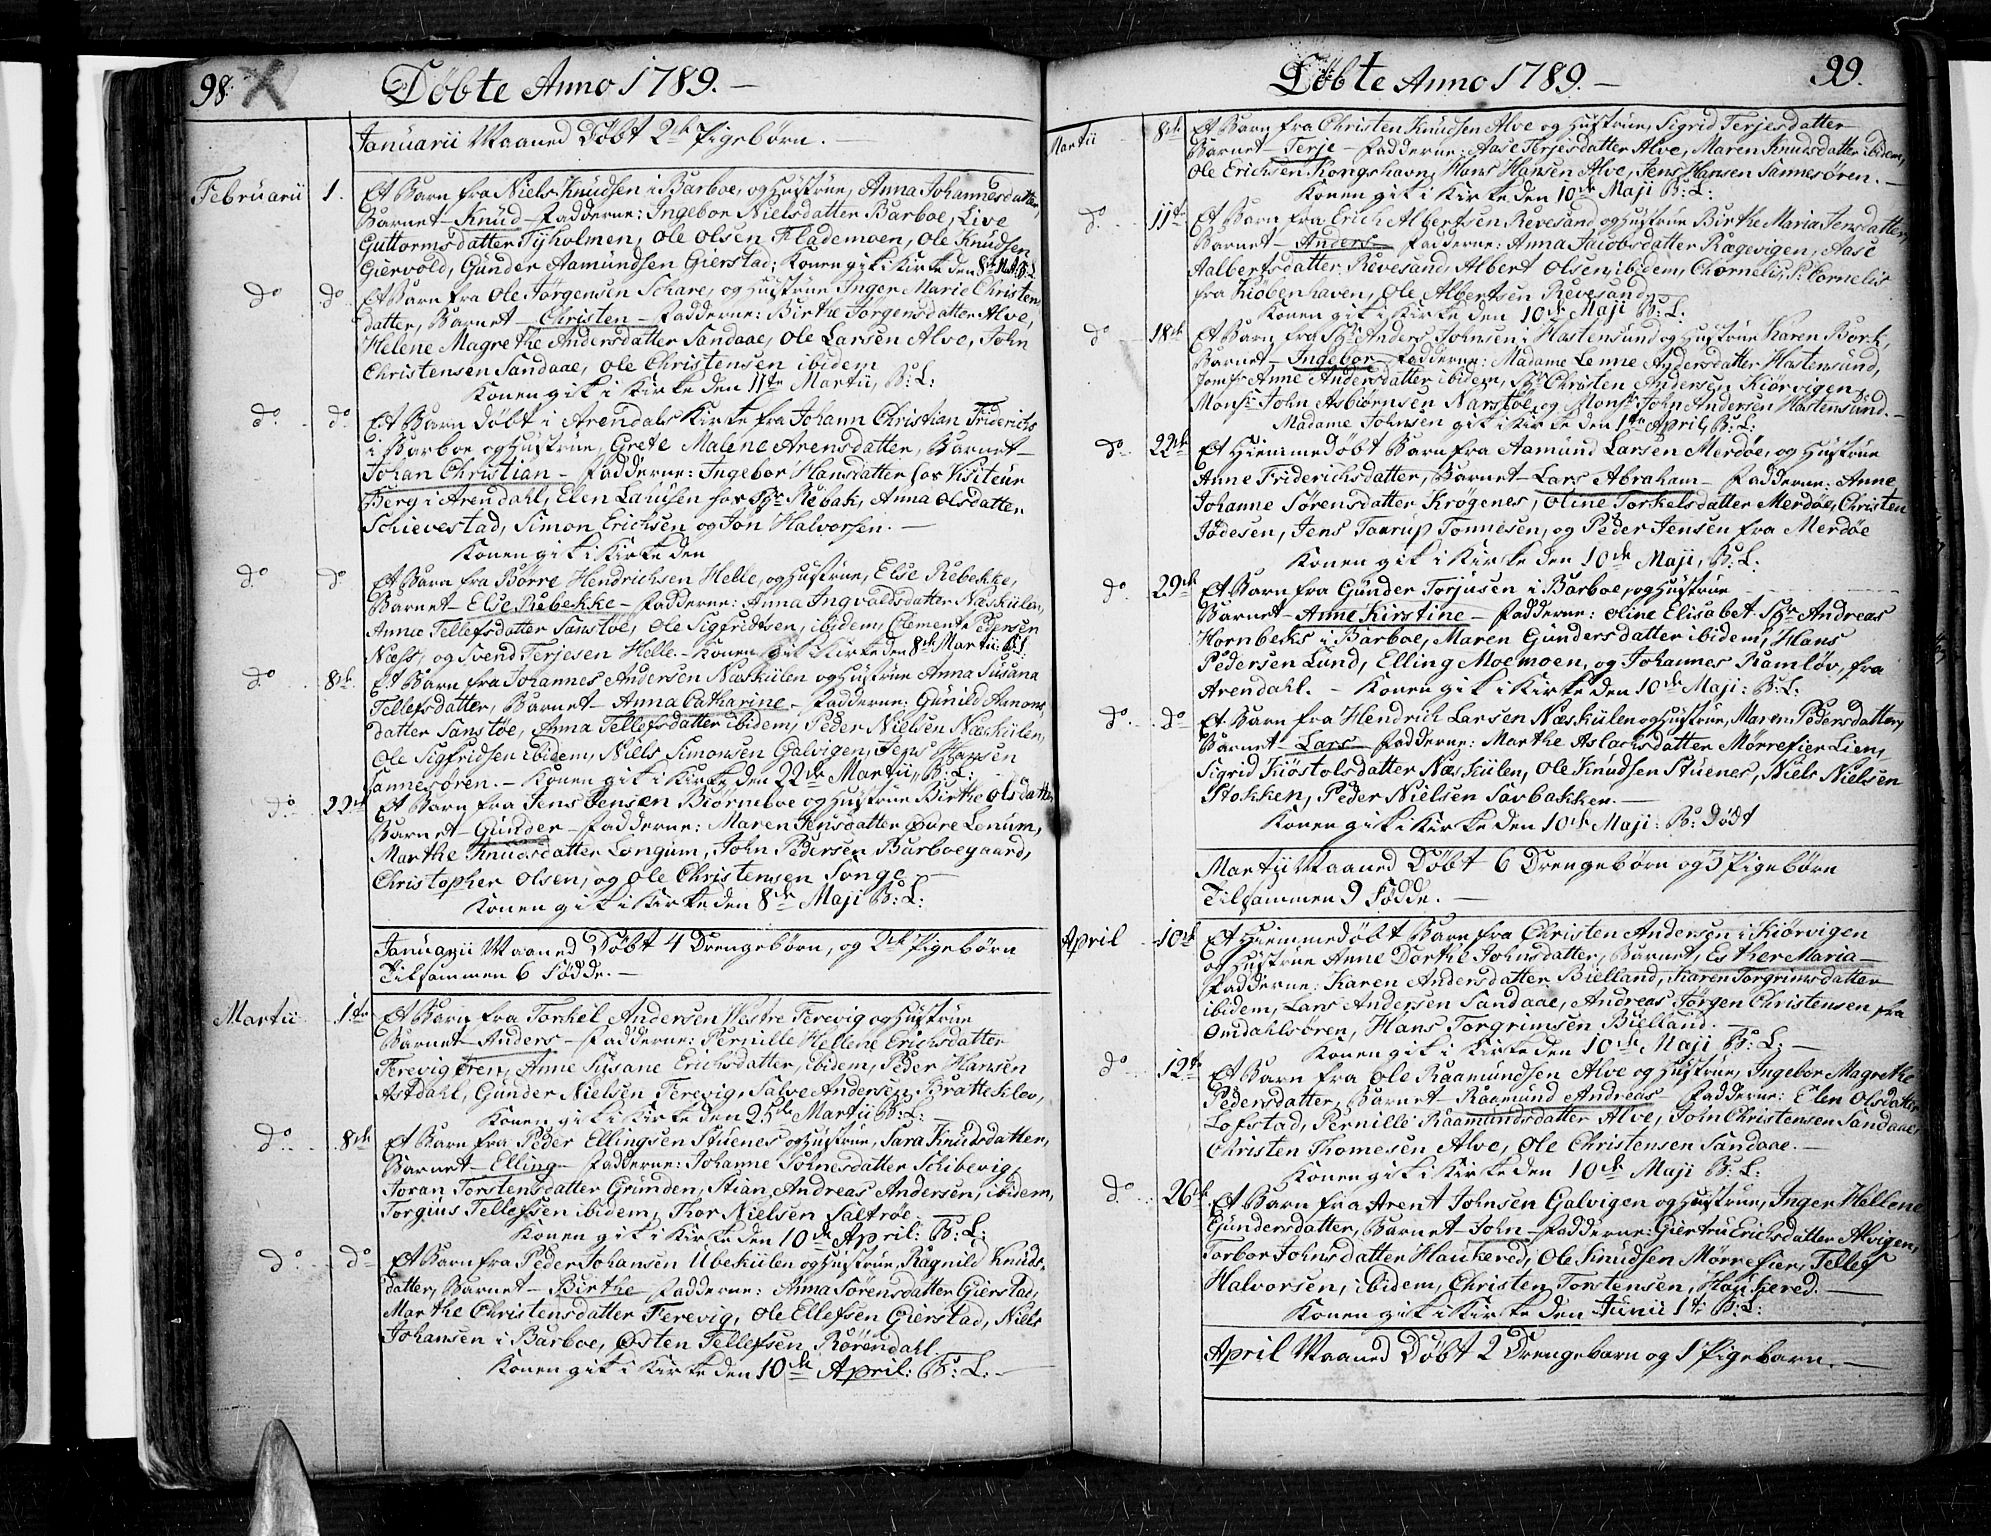 98.
Døbte Anno 1789.—
Januarii Maaned Døbt 2de Pigebørn.—
Februarii 1. Et Barn fra Niels Knudsen i Barboe, og Hustrue, Anna Johannesdatter,
Barnet — Knud — Fadderne: Ingebor Nielsdatter Barboe, Live
Guttormsdatter Tÿholmen, Ole Olsen Flademoen, Ole Knudsen
Giervold, Gunder Aamundsen Gierstad; Konen gik i Kirke den 8de M. B: L
do do Et Barn fra Ole Jørgensen Schare, og Hustrue Inger Marie Christens
datter, Barnet — Christen — Fadderne: Birthe Jørgensdatter Alve,
Helene Magrethe Andersdatter Sandaae, Ole Larsen Alve, John
Christensen Sandaae, Ole Christensen ibidem
Konen gik i Kirke den 11te Martii, B: L:
do do Et Barn Døbt i Arendals Kirke fra Johann Christian Friderichs
i Barboe og Hustrue, Grete Malene Arensdatter, Barnet —
Johan Christian — Fadderne: Ingebor Hansdatter hos Visiteur
Berg i Arendahl, Elen Laursen hos Sr Rebak, Anna Olsdatter
Schievestad, Simon Erichsen og Jon Halvorsen.—
Konen gik i Kirke den
do do Et Barn fra Børre Hendrichsen Helle, og Hustrue, Else Rebekke,
Barnet — Else Rebekke — Fadderne: Anna Ingvaldsdatter Næskilen,
Anne Tellefsdatter Sanstøe, Ole Sigfredsen, ibidem, Clement Pedersen
Næss, og Svend Terjesen Helle.— Konen gik i Kirke den 8de Martii: B: L
do 8de Et Barn fra Johannes Andersen Næskilen og Hustrue Anna Susana
Tellefsdatter, Barnet — Anna Catharine — Fadderne: Gunild Aanons
datter Sanstøe, Anna Tellefsdatter ibidem, Peder Nielsen Næskilen,
Ole Sigfridsen ibidem, Niels Simonsen Galvigen, Jens Hansen
Sannesøren.— Konen gik i Kirke den 22de Martii, B: L:
do 22de Et Barn fra Jens Jensen Biørneboe og Hustrue Birthe Olsdatter
Barnet — Gunder — Fadderne: Maren Jensdatter Øvre Lenum,
Marthe Knudsdatter Longum, John Pedersen Barboegaard,
Christopher Olsen, og Ole Christensen Songe —
Konen gik i Kirke den 8de Maji B: L:
Januarii Maaned Døbt 4 Drengebørn, og 2de Pigebørn
Tilsammen 6 Fødde.—
Martii 1te Et Barn fra Torkel Andersen Westre Ferevig og Hustrue
Barnet — Anders — Fadderne: Pernille Hellene Erichsdatter
Ferevig Ören, Anne Susane Erichsdatter, ibidem, Peder Hansen
Astdahl, Gunder Nielsen Ferevig, Salve Andersen Bratteklev,
Konen gik i Kirke den 25de Martii B: L:
do 8de Et Barn fra Peder Ellingsen Stuenes og Hustrue, Sara Knudsdatter,
Barnet — Elling — Fadderne: Johanne Tolnesdatter Schibevig,
Joran Torstensdatter Grunden, Stian Andreas Andersen, ibidem,
Torgius Tellefsen ibidem, Thor Nielsen Saltrøe.
Konen gik i Kirke den 10de April: B: L:
do do Et Barn fra Peder Johansen Ubekilen og Hustrue, Ragnild Knuds
datter, Barnet — Birthe — Fadderne: Anna Sørensdatter Gierstad,
Marthe Christensdatter Ferevig, Ole Ellefsen Gierstad, Niels
Johansen i Barboe, Østen Tellefsen, Rörendahl
Konen gik i Kirke den 10de April: B: L:—
Døbte Anno 1789.—
99.
Martii 8de Et Barn fra Christen Knudsen Alve og Hustrue, Sigrid Terjesdatter
Barnet — Terje — Fadderne: Aase Terjesdatter Alve, Maren Knudsdatter ibidem,
Ole Erichsen Kongshavn, Hans Hansen Alve, Jens Hansen Sannesøren.—
Konen gik i Kirke den 10de Maji B: L:
do 11te Et Barn fra Erich Albertsen Revesand og Hustrue Birthe Maria Jensdatter,
Barnet — Anders — Fadderne: Anna Jacobsdatter Rægevigen, Aase
Aalbertsdatter Revesand, Albert Olsen ibidem, Chornelis P: Cornelis
fra Kiøbenhaven, Ole Albertsen Revesand
Konen gik i Kirke den 10de Maji B: L.
do 18de Et Barn fra Sr Anders Johnsen i Hastensund og Hustrue Karen Bork,
Barnet — Ingebor — Fadderne: Madame Lenne Andersdatter Hastensund,
Jomfr Anne Andersdatter ibidem, Sr Christen Andersen Kiörvigen,
Monsr John Asbiørnsen Narstøe, og Monsr John Andersen Hastensund.—
Madame Johnsen gik i Kirke den 1te April, B: L:
do 22de Et Hiemmedøbt Barn fra Aamund Larsen Merdøe, og Hustrue
Anne Friderichsdatter, Barnet — Lars Abraham — Fadderne: Anne
Johanne Sørensdatter Krøgenes, Oline Torkelsdatter Merdøe, Christen
Jødesen, Jens Taarup Tonnesen, og Peder Jensen fra Merdøe
Konen gik i Kirke den 10de Maji, B: L:
do 29de Et Barn fra Gunder Torjusen i Barboe, og Hustrue
Barnet — Anne Kirstine — Fadderne: Oline Elisabet Sr Andreas
Hornbeks i Barboe, Maren Gundersdatter ibidem, Hans
Pedersen Lund, Elling Moemoen, og Johannes Ramløv, fra
Arendahl.— Konen gik i Kirke den 10de Maji: B: L:
do do Et Barn fra Hendrich Larsen Næskilen og Hustrue, Maren Pedersdatter,
Barnet — Lars — Fadderne: Marthe Aslachsdatter Mørrefier Lien,
Sigrid Kiøstolsdatter Næskilen, Ole Knudsen Stuenes, Niels Nielsen
Stokken, Peder Nielsen Sarbakken.—
Konen gik i Kirke den 10de Maji: B: Dødt
Martii Maaned Døbt 6 Drengebørn og 3 Pigebørn
Tilsammen 9 Fødde.—
April 10de Et Hiemmedøbt Barn fra Christen Andersen i Kiørvigen
og Hustrue Anne Dorthe Johnsdatter, Barnet, Esther Maria —
Fadderne: Karen Andersdatter Bielland, Karen Torgrimsdatter
ibidem, Lars Andersen Sandaae, Andreas Jørgen Christensen fra
Omdahlsøren, Hans Torgrimsen Bielland.—
Konen gik i Kirke den 10de Maji B: L:—
do 12te Et Barn fra Ole Raamundsen Alve og Hustrue, Ingebor Magrethe
Pedersdatter, Barnet — Raamund Andreas — Fadderne: Elen Olsdatter
Lofstad, Pernille Raamundsdatter Alve, John Christensen Sandaae,
Christen Thomesen Alve, Ole Christensen Sandaae.—
Konen gik i Kirke den 10de Maji B: L:
do 26de Et Barn fra Arent Johnsen Galvigen og Hustrue, Inger Hellene
Gundersdatter, Barnet — John — Fadderne: Giertru Erichsdatter Alvigen,
Tarbor Johnsdatter Haukered, Ole Knudsen Mørrefier, Tellef
Halvorsen, ibidem, Christen Torstensen, Haukered.—
Konen gik i Kirke den Junii 1te B: L:
April Maaned Døbt 2 Drengebørn og 1 Pigebarn.—